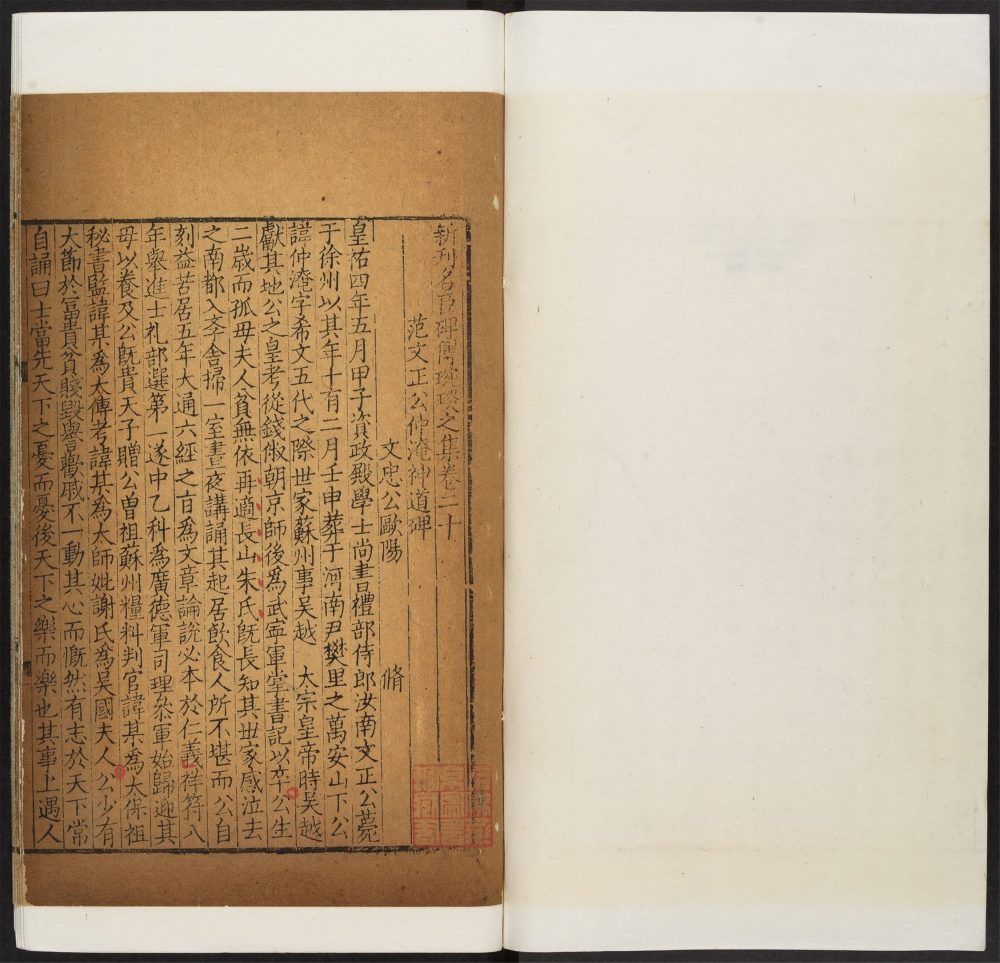 新刊名臣碑傳琬琰之集卷二十
范文正公仲淹神道碑
文忠公歐陽 脩
皇祐四年五月甲子資政殿學士尚書禮部侍郎汝南文正公薨
于徐州以其年十有二月壬申葬于河南尹樊里之萬安山下公
諱仲淹字希文五代之際世家蘇州事吳越 太宗皇帝時吳越
獻其地公之皇考從錢俶朝京師後為武寧軍掌書記以卒公生
二歲而孤母夫人貧無依再適長山朱氏既長知其世家感泣去
之南都入斈舍掃一室晝夜講誦其起居飲食人所不堪而公自
刻益苦居五年大通六經之旨為文章論說必本於仁義祥符八
年舉進士礼部選第一遂中乙科為廣德軍司理叅軍始歸迎其
母以養及公既貴天子贈公曾祖蘇州糧料判官諱某為太保祖
秘書監諱某為太傅考諱某為太師妣謝氏為吳國夫人公少有
大節於冨貴貧賤毀譽歡戚不一動其心而慨然有志於天下常
自誦曰士當先天下之憂而憂後天下之樂而樂也其事上遇人